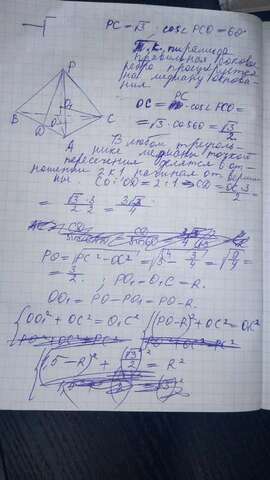 PC = √3; cos∠PCO = 60°
Т.к. пирамида
правильная боковое
ребро проецируется
на медиану основа-
ния
OC = PC · cos∠PCO =
= √3 · cos60 = √3/2
В любом треуголь-
нике медианы точкой
пересечения делятся в от-
ношении 2 к 1 начиная от верши-
ны. CO : OD = 2 : 1 ⇒ CD = OC·3/2 =
= √3/2 · 3/2 = 3√3/4
PO = √PC² - OC² = √3 - 3/4 = √9/4 =
= 3/2 ; PO₁ = O₁C = R.
OO₁ = PO - PO₁ = PO - R.
{ OO₁² + OC² = O₁C² { (PO-R)² + OC² = OC²
PO² + OC² = PC²
(1,5 - R)² + (√3/2)² = R²
P
O₁
B
D
O
C
A